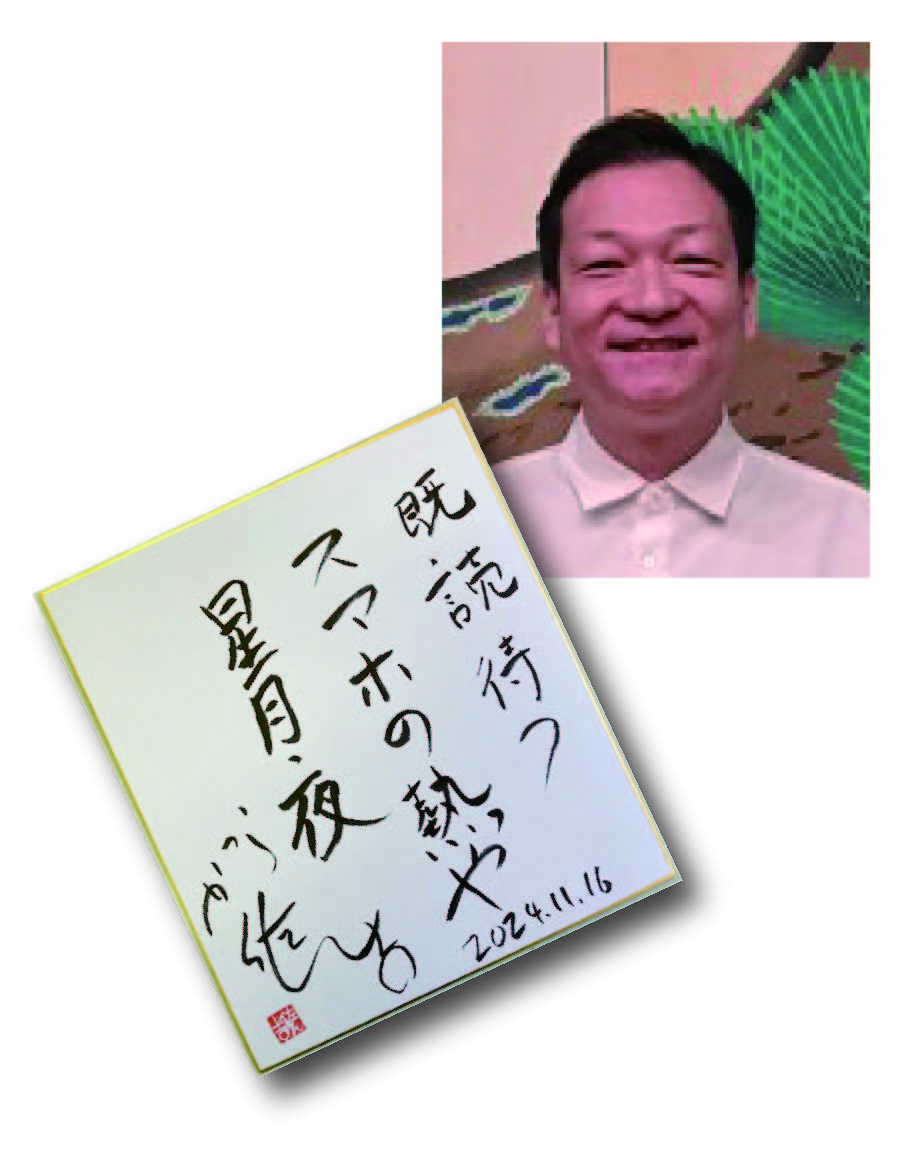 既読待つ
スマホの熱や
星月夜
2024.11.16